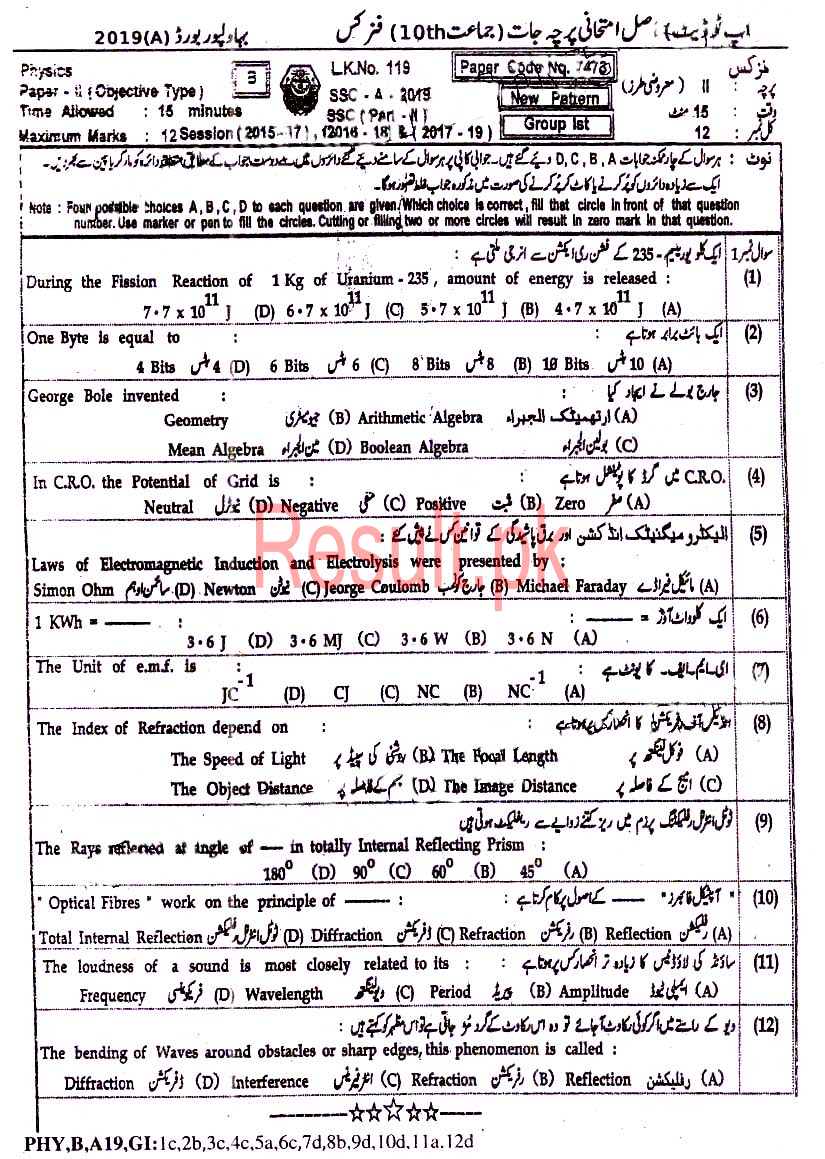 اپ ٹو ڈیٹ اصل امتحانی پرچہ جات (جماعت 10th) فزکس بہاولپور بورڈ 2019(A)
Physics L.K.No. 119 Paper Code No. 7473 فزکس
Paper - II (Objective Type) 3 SSC - A - 2019 New Pattern پرچہ : II (معروضی طرز)
Time Allowed : 15 minutes SSC (Part - II) Group Ist وقت : 15 منٹ
Maximum Marks : 12 Session (2015-17), (2016-18) & (2017-19) کل نمبر : 12
نوٹ : ہر سوال کے چار ممکنہ جوابات D, C, B, A دیئے گئے ہیں۔ جوابی کاپی پر ہر سوال کے سامنے دیئے گئے دائروں میں سے درست جواب کے مطابق متعلقہ دائرہ کو مارکر یا پین سے بھر دیں۔
ایک سے زیادہ دائروں کو پُر کرنے یا کاٹ کر پُر کرنے کی صورت میں مذکورہ جواب غلط تصور ہوگا۔
Note : Four possible choices A, B, C, D to each question are given. Which choice is correct, fill that circle in front of that question
number. Use marker or pen to fill the circles. Cutting or filling two or more circles will result in zero mark in that question.
سوال نمبر 1 ایک کلو یورینیم - 235 کے فشن ری ایکشن سے انرجی ملتی ہے :
During the Fission Reaction of 1 Kg of Uranium - 235 , amount of energy is released : (1)
7·7 x 10¹¹ J (D) 6·7 x 10¹¹ J (C) 5·7 x 10¹¹ J (B) 4·7 x 10¹¹ J (A)
One Byte is equal to : : ایک بائٹ برابر ہوتا ہے (2)
4 Bits 4 بٹس (D) 6 Bits 6 بٹس (C) 8 Bits 8 بٹس (B) 10 Bits 10 بٹس (A)
George Bole invented : : جارج بولے نے ایجاد کیا (3)
Geometry جیومیٹری (B) Arithmetic Algebra ارتھمیٹک الجبراء (A)
Mean Algebra مین الجبراء (D) Boolean Algebra بولین الجبراء (C)
In C.R.O. the Potential of Grid is : : C.R.O. میں گرڈ کا پوٹینشل ہوتا ہے (4)
Neutral نیوٹرل (D) Negative منفی (C) Positive مثبت (B) Zero صفر (A)
الیکٹرو میگنیٹک انڈکشن اور برقی پاشیدگی کے قوانین کس نے پیش کئے : (5)
Laws of Electromagnetic Induction and Electrolysis were presented by :
Simon Ohm سائمن اوہم (D) Newton نیوٹن (C) Jeorge Coulomb جارج کولمب (B) Michael Faraday مائیکل فیراڈے (A)
1 KWh = ——— : : ——— = ایک کلوواٹ آور (6)
3·6 J (D) 3·6 MJ (C) 3·6 W (B) 3·6 N (A)
The Unit of e.m.f. is : : ای۔ایم۔ایف۔ کا یونٹ ہے (7)
JC⁻¹ (D) CJ (C) NC (B) NC⁻¹ (A)
The Index of Refraction depend on : : انڈیکس آف ریفریکشن کا انحصار کس پر ہوتا ہے (8)
The Speed of Light روشنی کی سپیڈ پر (B) The Focal Length فوکل لینگتھ پر (A)
The Object Distance جسم کے فاصلہ پر (D) The Image Distance امیج کے فاصلہ پر (C)
ٹوٹل انٹرنل ریفلیکٹنگ پرزم میں ریز کتنے زاویے سے ریفلیکٹ ہوتی ہیں (9)
The Rays reflected at angle of —— in totally Internal Reflecting Prism :
180⁰ (D) 90⁰ (C) 60⁰ (B) 45⁰ (A)
"Optical Fibres" work on the principle of ——— : : "آپٹیکل فائبرز" ——— کے اصول پر کام کرتا ہے (10)
Total Internal Reflection ٹوٹل انٹرنل ریفلیکشن (D) Diffraction ڈفریکشن (C) Refraction رفریکشن (B) Reflection رفلیکشن (A)
The loudness of a sound is most closely related to its : : ساؤنڈ کی لاؤڈنیس کا زیادہ تر انحصار کس پر ہوتا ہے (11)
Frequency فریکوئنسی (D) Wavelength ویولینگتھ (C) Period پیریڈ (B) Amplitude ایمپلی ٹیوڈ (A)
ویو کے راستے میں اگر کوئی رکاوٹ آجائے تو وہ اس رکاوٹ کے گرد مُڑ جاتی ہے تو اس مظہر کو کہتے ہیں : (12)
The bending of Waves around obstacles or sharp edges, this phenomenon is called :
Diffraction ڈفریکشن (D) Interference انٹرفیرنس (C) Refraction رفریکشن (B) Reflection رفلیکشن (A)
----------☆☆☆☆☆----------
PHY,B,A19,GI:1c,2b,3c,4c,5a,6c,7d,8b,9d,10d,11a.12d
Result.pk